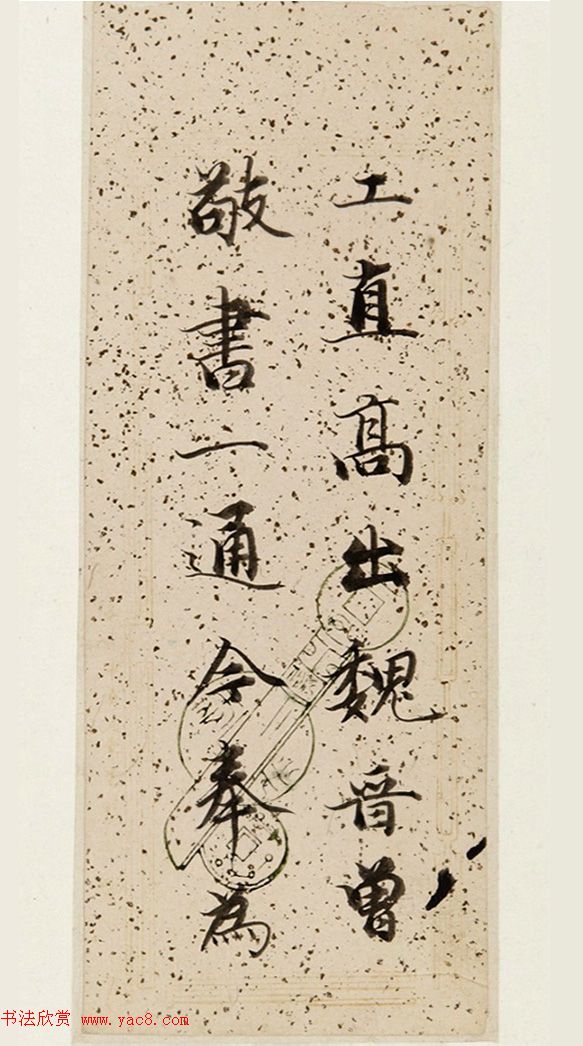 工直高出魏晉曾
敬書一通今奉為
书法欣赏 www.yac8.com